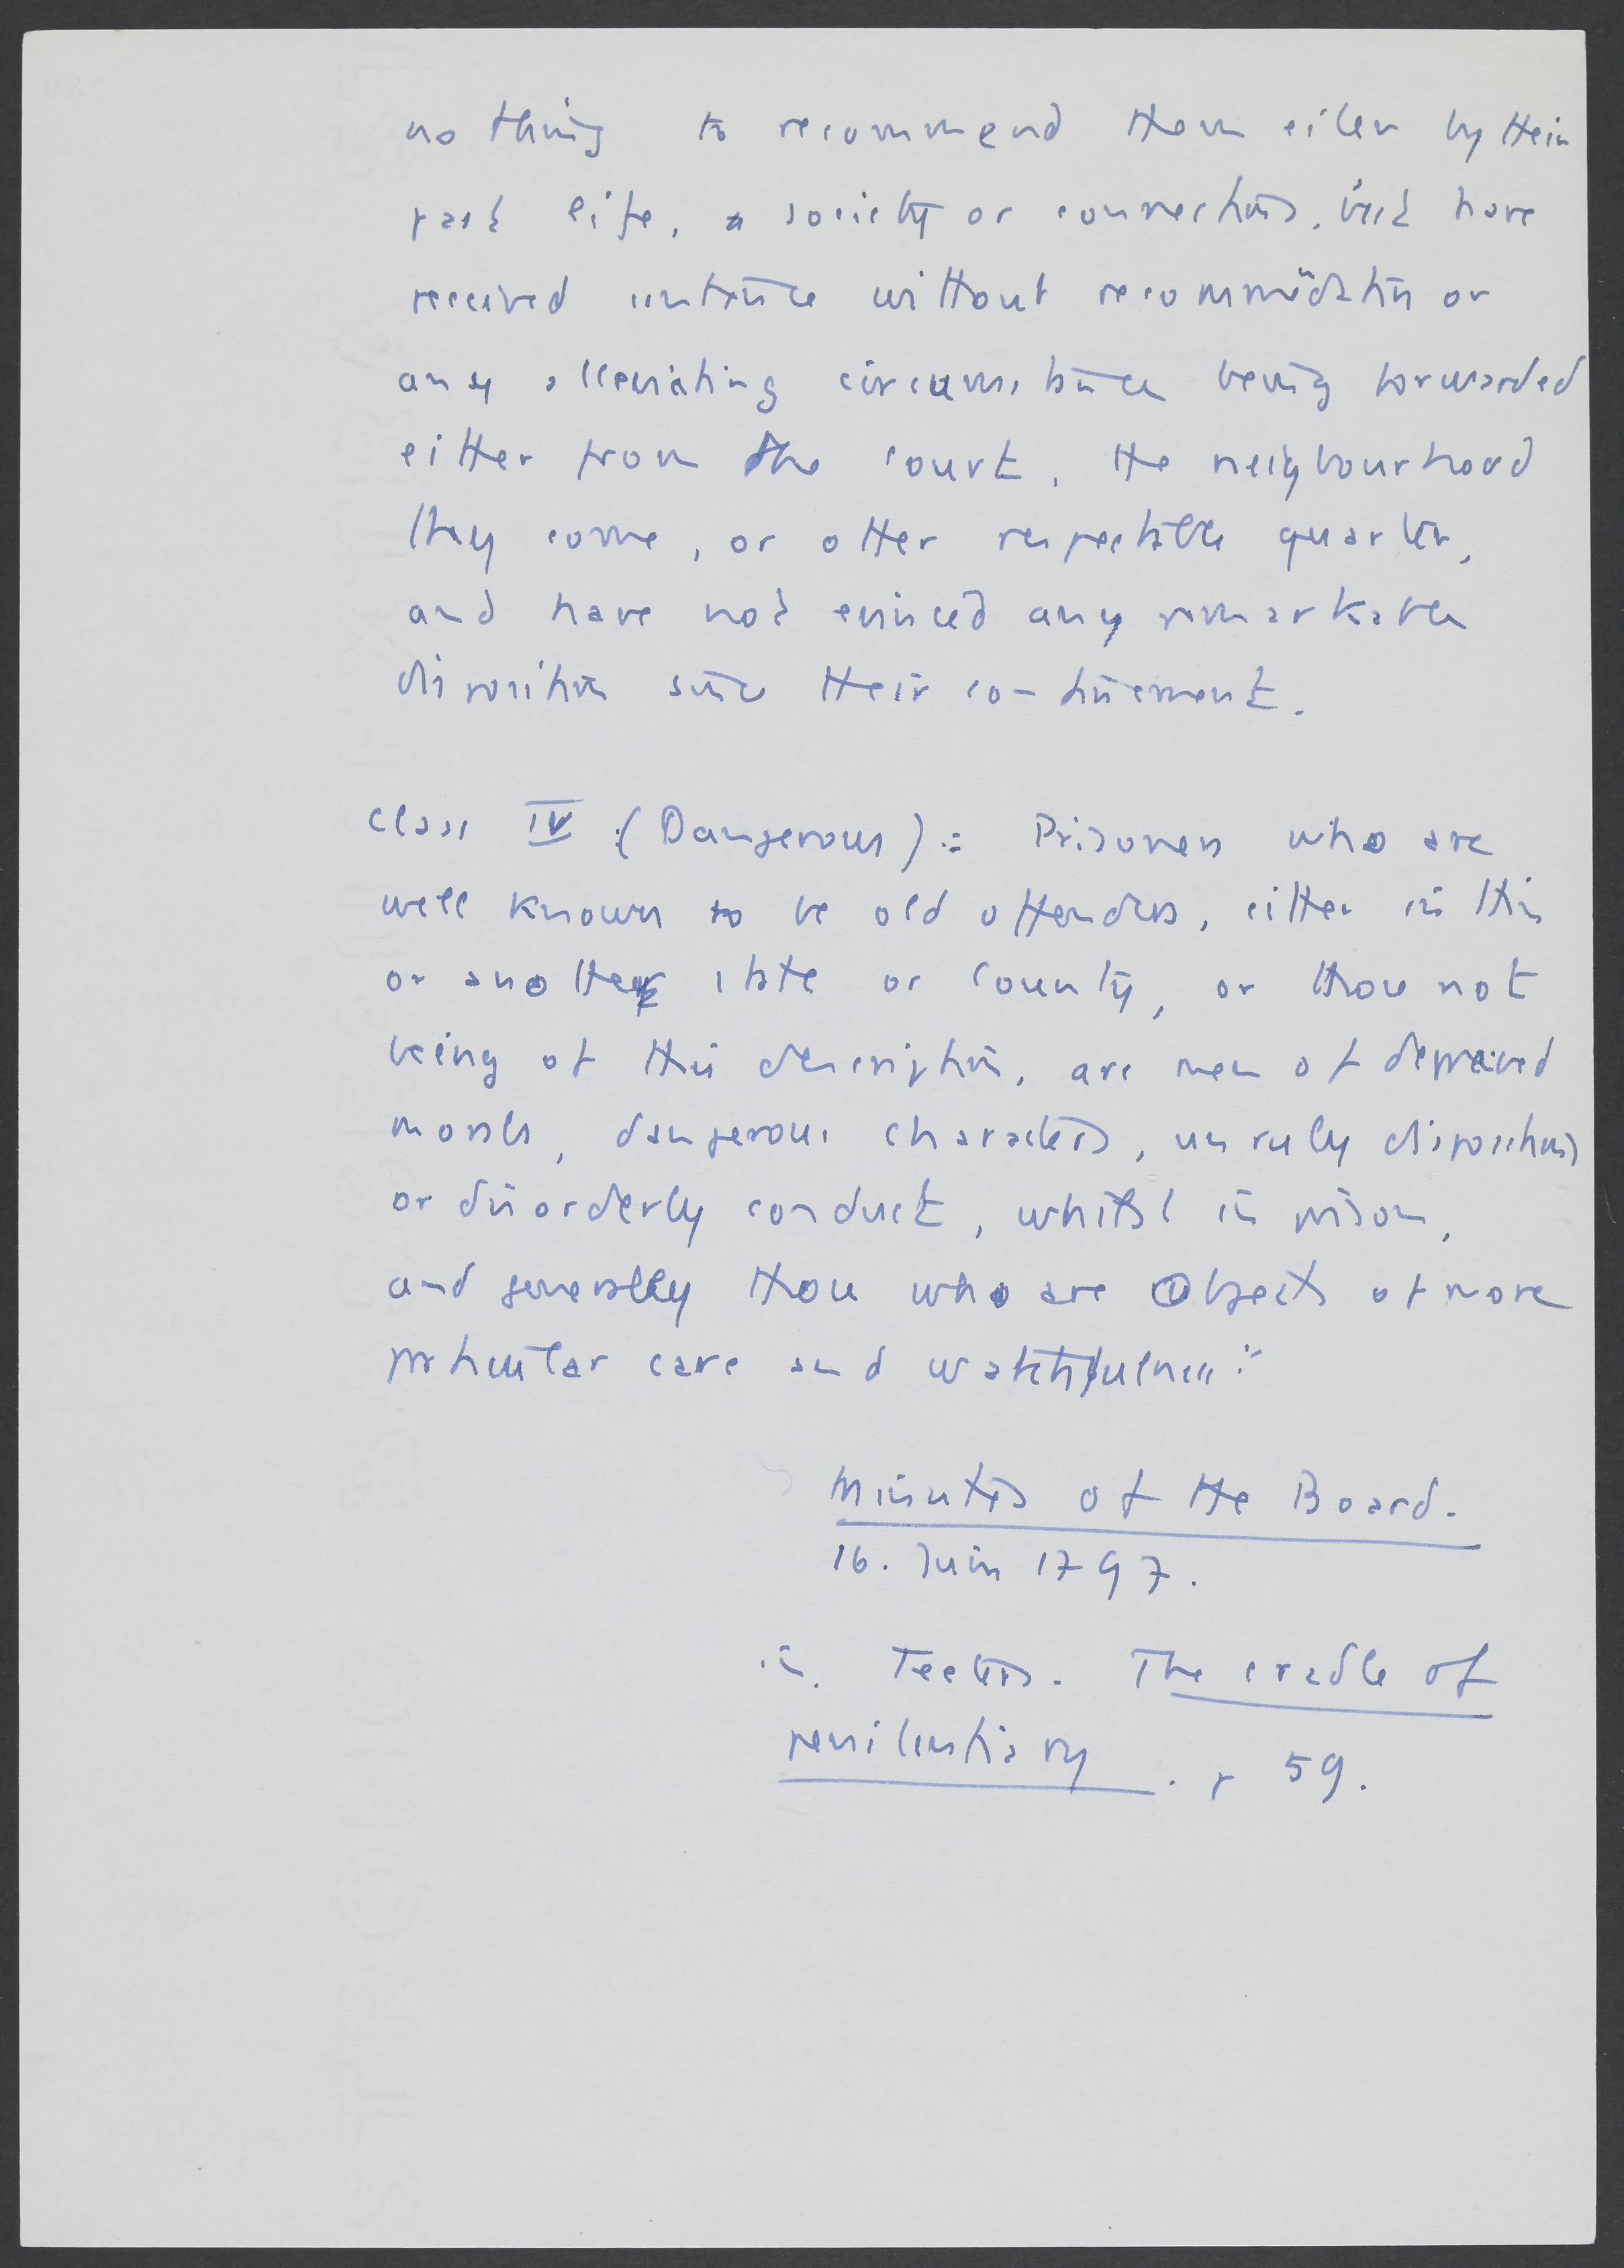 nothing to recommend them either by their
past life, society or connections, but have
received sentence without recommendation or
any alleviating circumstance being forwarded
either from the court, the neighbourhood
they come, or other respectable quarter,
and have not evinced any remarkable
disposition since their confinement.
Class IV (Dangerous) : Prisoners who are
well known to be old offenders, either in this
or another state or county, or those not
being of this description, are men of depraved
morals, dangerous characters, unruly dispositions
or disorderly conduct, whilst in prison,
and generally those who are objects of more
particular care and watchfulness."
Minutes of the Board.
16. Juin 1797.
in. Teeters. The cradle of
penitentiary. p 59.